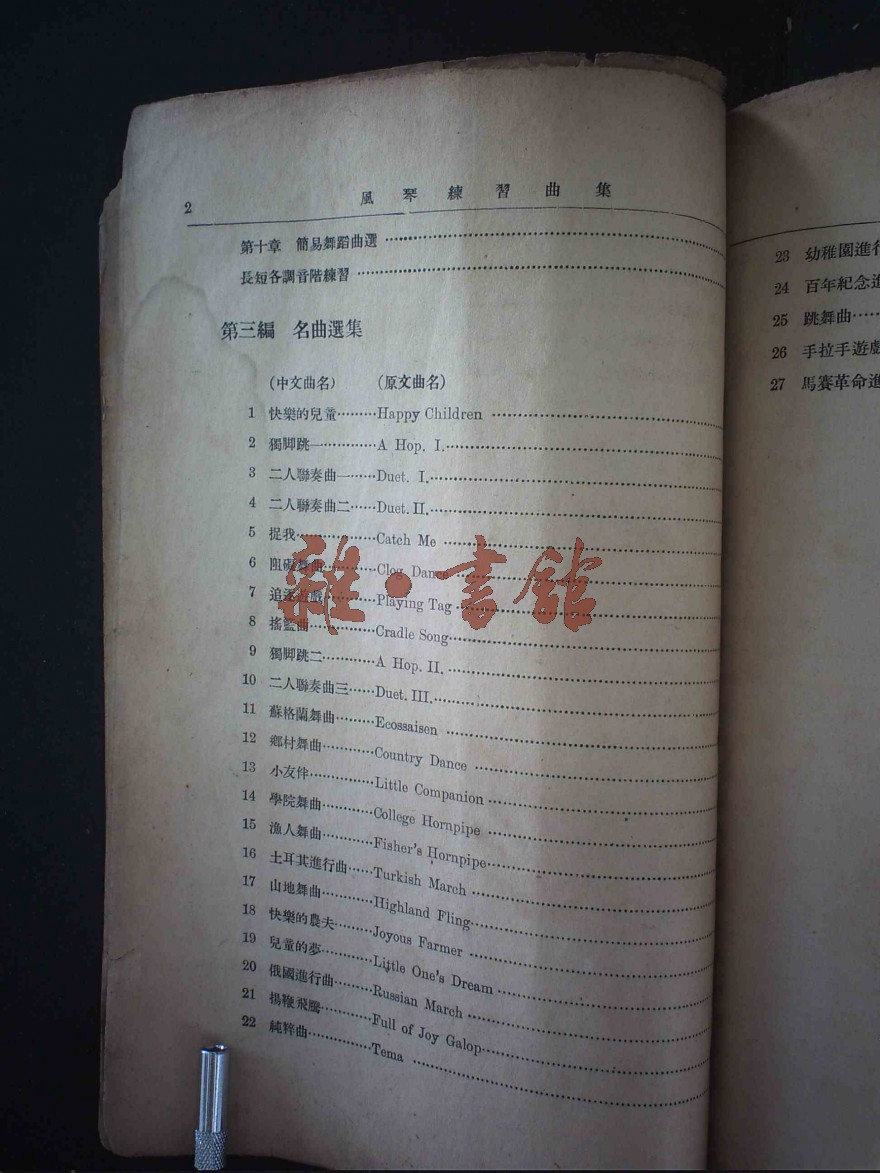 2 風琴練習曲集
第十章 簡易舞蹈曲選
長短各調音階練習
第三編 名曲選集
(中文曲名) (原文曲名)
1 快樂的兒童………Happy Children
2 獨脚跳一…………A Hop. I.
3 二人聯奏曲一……Duet. I.
4 二人聯奏曲二……Duet. II.
5 捉我………………Catch Me
6 阻礙舞曲…………Clog Dance
7 追逐遊戲…………Playing Tag
8 搖籃曲……………Cradle Song
9 獨脚跳二…………A Hop. II.
10 二人聯奏曲三……Duet. III.
11 蘇格蘭舞曲………Ecossaisen
12 鄉村舞曲…………Country Dance
13 小友伴……………Little Companion
14 學院舞曲…………College Hornpipe
15 漁人舞曲…………Fisher's Hornpipe
16 土耳其進行曲……Turkish March
17 山地舞曲…………Highland Fling
18 快樂的農夫………Joyous Farmer
19 兒童的夢…………Little One's Dream
20 俄國進行曲………Russian March
21 揚鞭飛騰…………Full of Joy Galop
22 純粹曲……………Tema
23 幼稚園進行
24 百年紀念進
25 跳舞曲……
26 手拉手遊戲
27 馬賽革命進
雜·書館